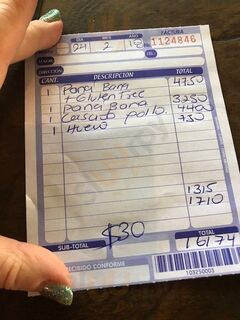 DIA MES AÑO FACTURA
24 2 18 1124846
SEÑOR
DIRECCIÓN TEL.
CANT. DESCRIPCIÓN TOTAL
1 Pana Bana 4750
+ Gluten Free
1 Pana Bana 3250
1 Casado pollo. 4400
1 Huevo 750
1315
1710
$30
SUB-TOTAL TOTAL 16174
RECIBIDO CONFORME
103250003